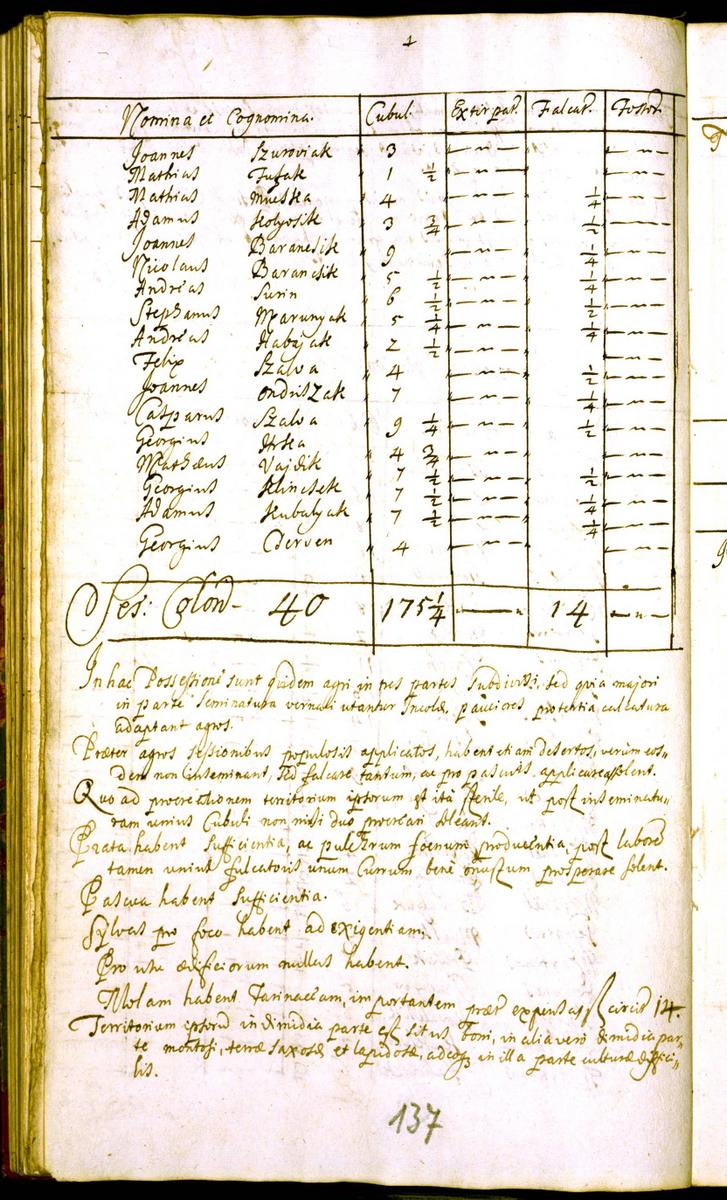 1
Nomina et Cognomina. Cubul. Extirpat. Falcat. Fossor.
Joannes Szuroviak 3 — " — — " —
Mathias Fusak 1 1/2 — " — — " —
Mathias 4 — " — 1/4 — " —
Adamus Holyosik 3 3/4 — " — 1/2 — " —
Joannes Barancsik 9 — " — 1/4 — " —
Nicolaus Barancsik 5 1/2 — " — 1/4 — " —
Andreas Surin 6 1/2 — " — 1/2 — " —
Stephanus Marunyak 5 1/4 — " — 1/4 — " —
Andreas Habzjak 2 1/2 — " — — " —
Felix Szalva 4 — " — 1/2 — " —
Joannes Ondriszak 7 — " — 1/4 — " —
Casparus Szalva 9 1/4 — " — 1/2 — " —
Georgius Hrska 4 3/4 — " — — " —
Mathaeus Vajdik 7 1/2 — " — 1/2 — " —
Georgius Klincsek 7 1/2 — " — 1/4 — " —
Adamus Kubalyak 7 1/2 — " — 1/4 — " —
Georgius Cderven 4 — " — — " —
Ses: Colon- 40 175 1/4 — " 14 — " —
In hac Possessione sunt quidem agri in tres partes subdivisi, sed quia majori
in parte seminatura vernali utantur Incolae, pauciores pro tertia calcatura
adaptant agros.
Praeter agros sessionibus populosis applicatos, habent etiam desertos, verum eos,,
dem non inseminant, sed falcare tantum, ac pro pascuis applicare solent.
Quo ad procreationem territorium ipsorum est ita sterile, ut post inseminatu,,
ram unius Cubuli non nisi duo procreari soleant.
Prata habent sufficientia, ac pulchrum foenum producentia, post labore
tamen unius falcatoris unum Currum bene onustum prosperare solent.
Pascua habent sufficientia.
Sylvas pro foco habent ad exigentiam.
Pro usu aedificiorum nullas habent.
Molam habent farinaceam, importantem praeter expensas fl circit 14.
Territorium ipsoru in dimidia parte est situs boni, in alia vero dimidia par,,
te montosi, terrae saxosae et lapidosae, adeoq in illa parte culturae diffici,,
lis.
137